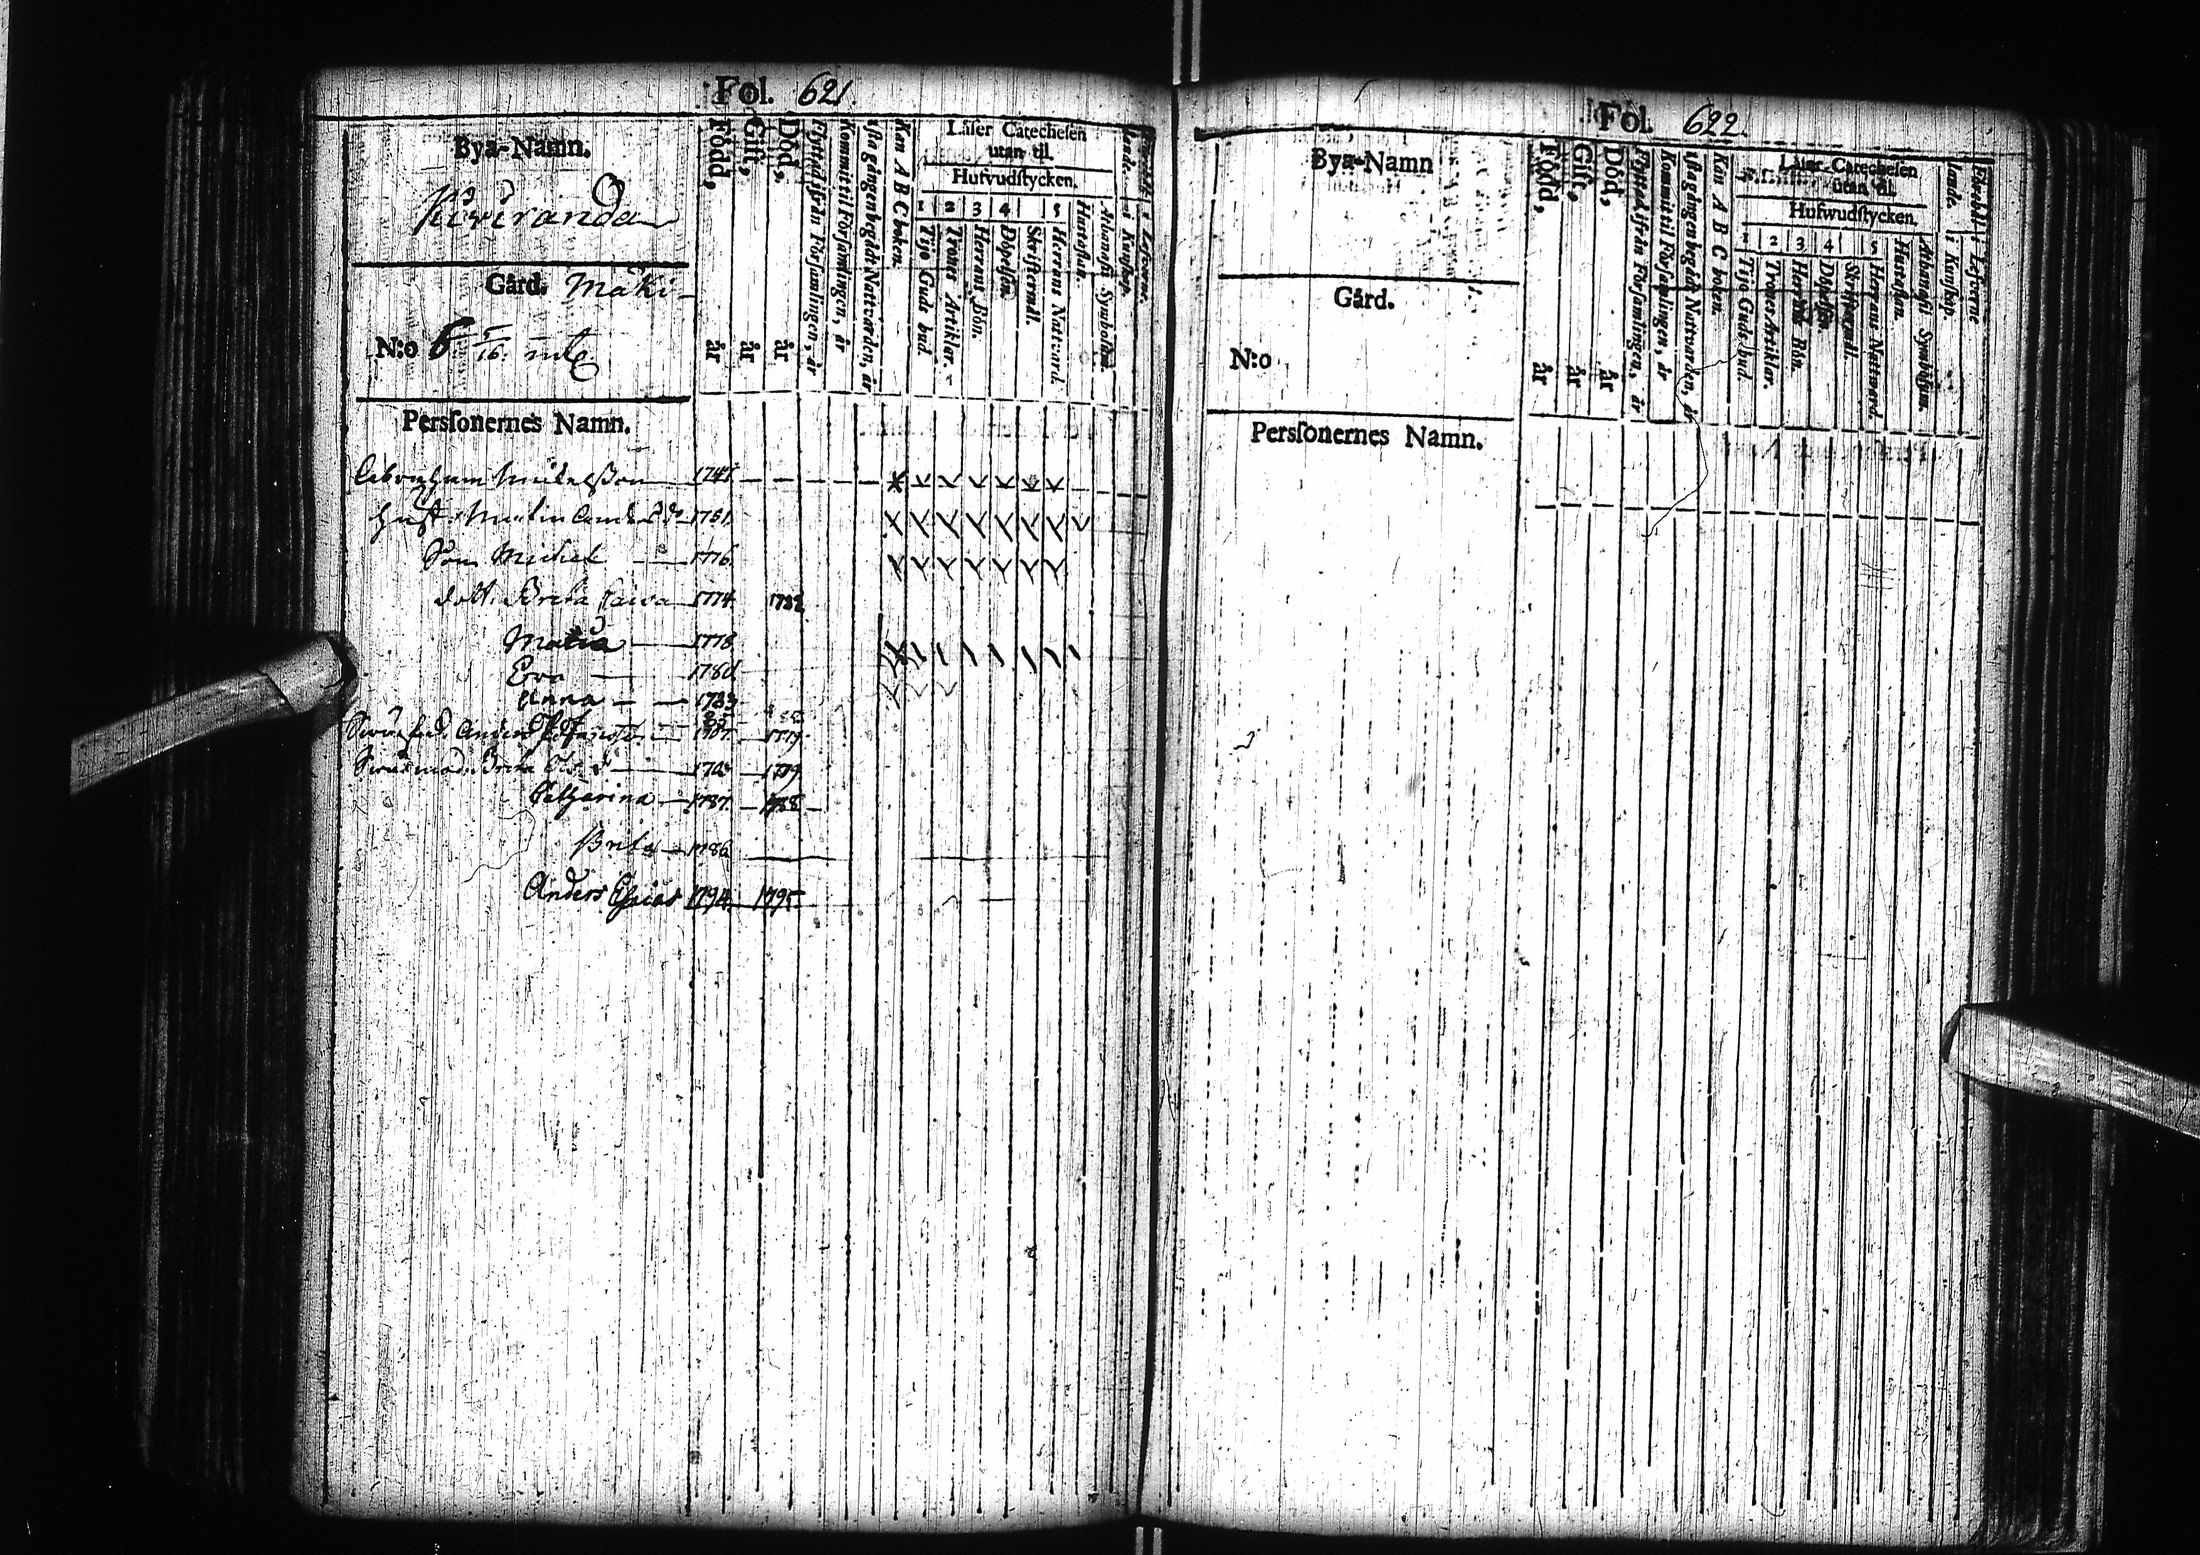 Fol. 621.
Bya-Namn.
Kiviranda
Gård. Mäki-
N:o 6 5/16 mtl
Född, år
Gift, år
Död, år
Flyttad ifrån Församlingen, år
Kommit til Församlingen, år
1sta gången begådt Nattvarden, år
Kan A B C boken.
Läser Catechesen
utan til.
Hufvudstycken.
1 2 3 4 5
Tijo Guds bud.
Trones Artiklar.
Herrans Bön.
Döpelsen.
Skriftermål.
Herrans Nattvard.
Hustaflan.
Athanasii Symbolum.
Persfonernes Namn.
Abraham Michelsson 1747.
Hust. Malin Anders d:r 1751.
Son Michel 1776.
dott. Brita Caisa 1774. 1782
Maria 1778
Eva 1780
Anna 1783
Anders
Brita 1779
Catharina 1787. 1788
Brita 1786
Anders Esaias 1794. 1795.
Fol. 622.
Bya-Namn
Gård.
N:o
Född, år
Gift, år
Död, år
Flyttad ifrån Församlingen, år
Kommit til Församlingen, år
1sta gången begådt Nattvarden, år
Kan A B C boken.
Läser Catechesen
utan til.
Hufwudstycken.
1 2 3 4 5
Tijo Guds bud.
Trones Artiklar.
Herrans Bön.
Döpelsen
Skriftermål.
Herrans Nattward.
Hustaflan.
Athanasii Symbolum.
Persfonernes Namn.